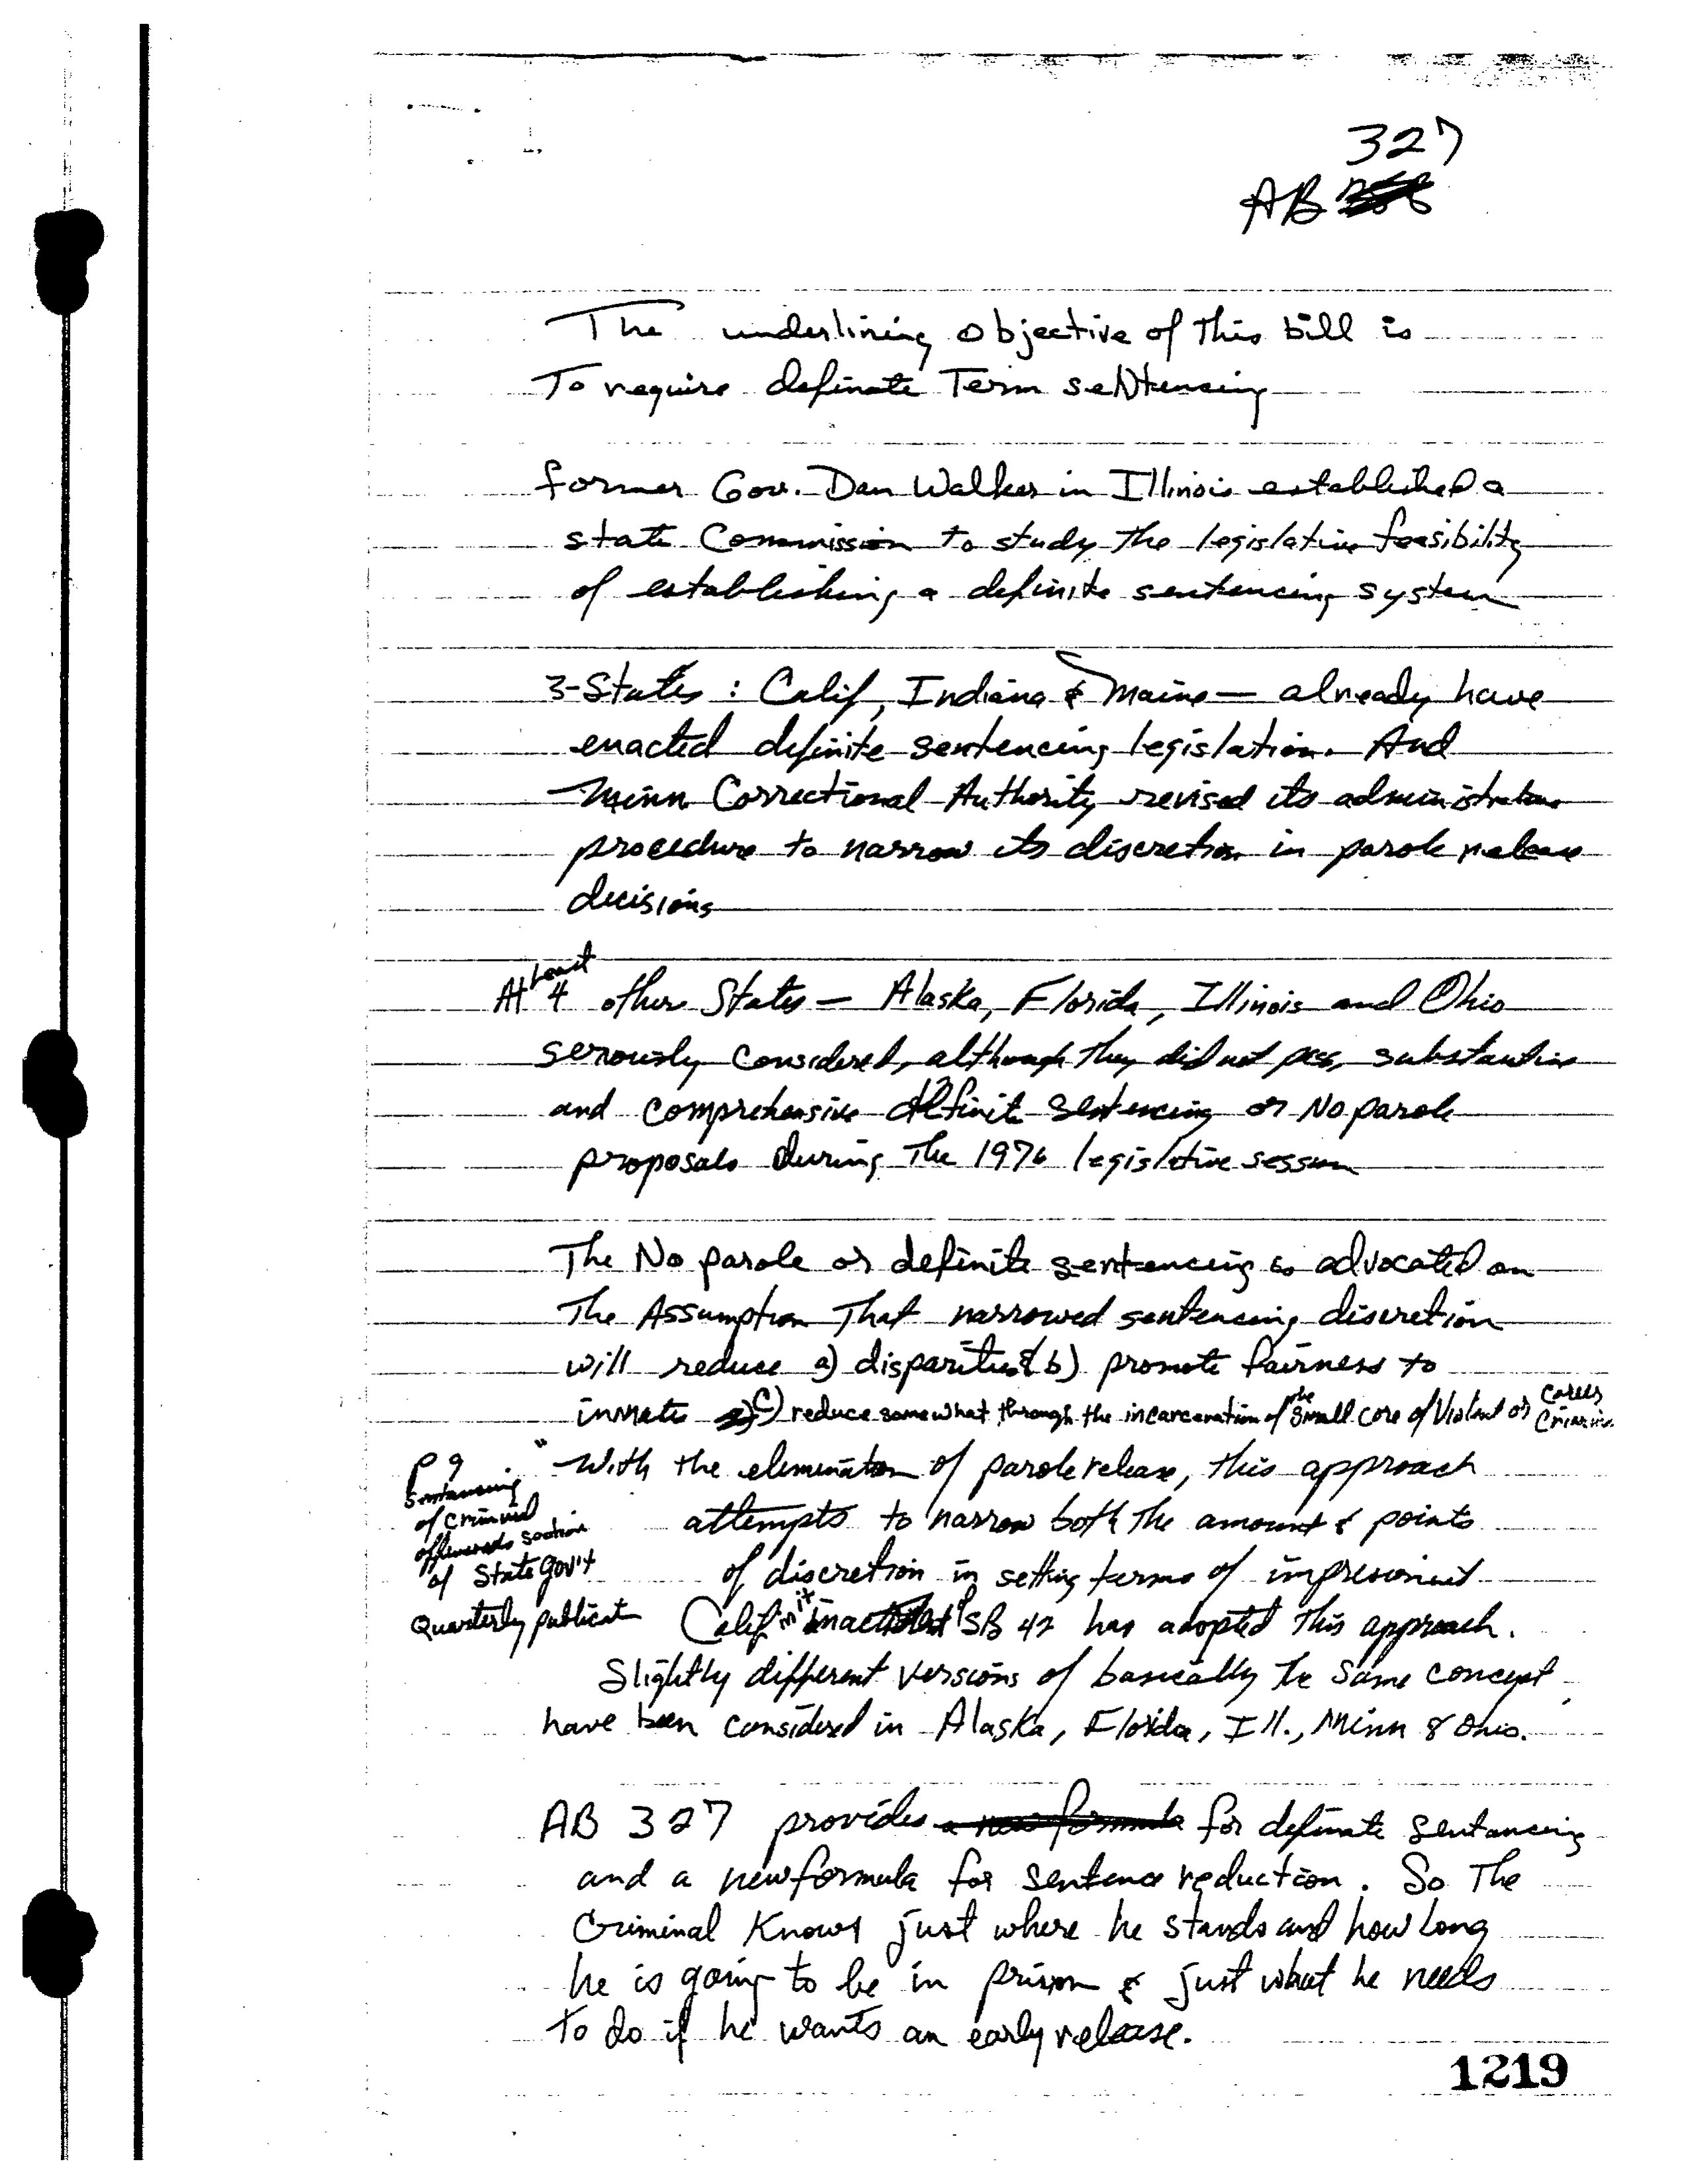 327
AB
The underlining objective of This bill is
To require definate Term seNtencing
former Gov. Dan Walker in Illinois established a
state Commission to study the legislative feasibility
of establishing a definite sentencing system
3-States : Calif, Indiana & Maine — already have
enacted definite sentencing legislation. And
Minn Correctional Authority revised its administrative
procedure to narrow its discretion in parole release
decisions
At least 4 other States — Alaska, Florida, Illinois and Ohio
seriously considered, although they did not pass, substantive
and comprehensive definite sentencing or No parole
proposals during The 1976 legislative session
The No parole or definite sentencing is advocated on
The Assumption That narrowed sentencing discretion
will reduce a) disparities & b) promote fairness to
inmates c) reduce somewhat through the incarceration of the small core of Violent or career Criminals
P 9
Sentancing
of criminal
offenerds section
of State Gov't
Quarterly publicat
"With the elimination of parole release, this approach
attempts to narrow both the amount & points
of discretion in setting terms of impresonment
Calif in it SB 42 has adopted this approach.
Slightly different versions of basically the same concept
have been considered in Alaska, Florida, Ill., Minn & Ohio.
AB 327 provides a new formula for definate sentancing
and a new formula for sentence reduction. So The
Criminal Knows just where he stands and how long
he is going to be in prison & just what he needs
to do if he wants an early release.
1219